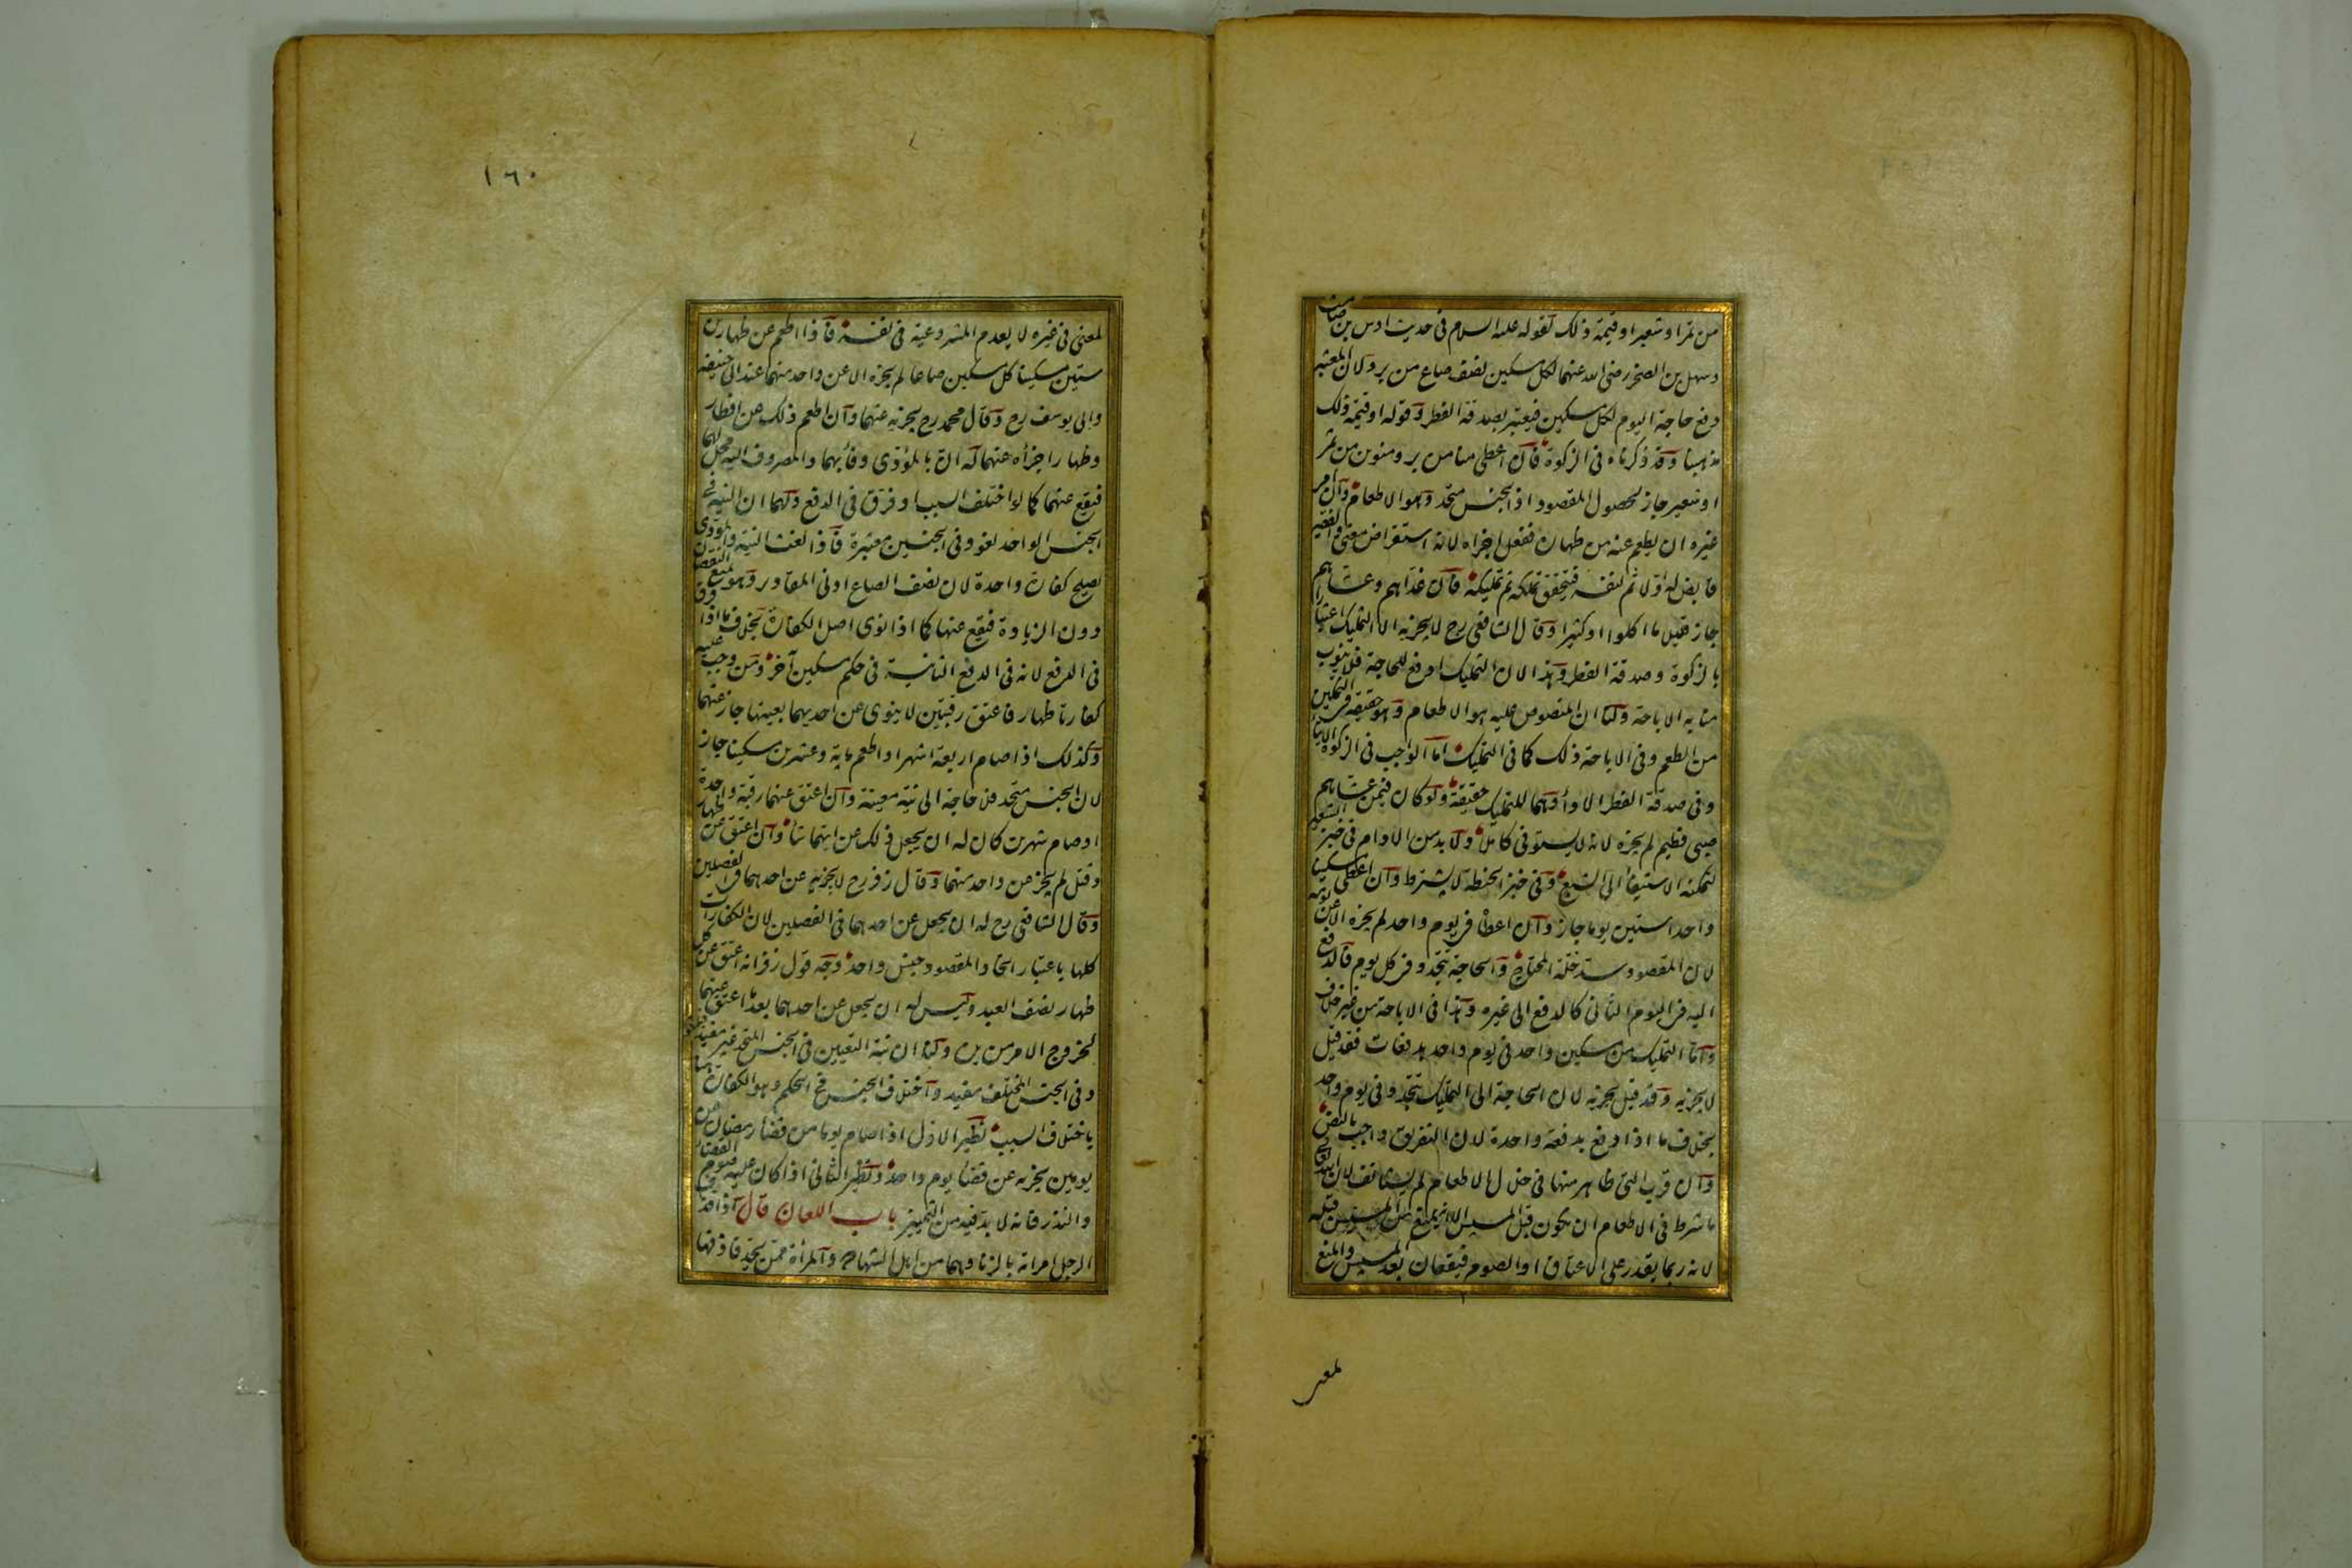 من تمر او شعير او قيمة ذلك لقوله عليه السلام فى حديث اوس بن صامت
وسهل بن الصخر رضى الله عنهما لكل مسكين نصف صاع من بر ولان المعتبر
دفع حاجة اليوم لكل مسكين فيعتبر بصدقة الفطر وقوله او قيمة ذلك
مذهبنا وقد ذكرناه فى الزكوة فان اعطى منا من بر ومنوين من تمر
او شعير جاز لحصول المقصود اذ الجنس متحد وهو الاطعام وان امر
غيره ان يطعم عنه من ظهاره ففعل اجزاه لانه استقراض معنى والفقير
قابض له اولا ثم لنفسه فيتحقق تملكه ثم تمليكه فان غداهم وعشاهم
جاز قليل ما اكلوا او كثيرا وقال الشافعى رح لا يجزيه الا التمليك اعتبارا
بالزكوة وصدقة الفطر وهذا لان التمليك ادفع للحاجة فلا ينوب
منابه الاباحة ولنا ان المنصوص عليه هو الاطعام وهو حقيقة فى التمكين
من الطعم وفى الاباحة ذلك كما فى التمليك اما الواجب فى الزكوة الايتاء
وفى صدقة الفطر الاداء وهما للتمليك حقيقة ولو كان فيمن عشاهم
صبى فطيم لم يجزه لانه لا يستوفى كاملا ولا بد من الادام فى خبز الشعير
لتمكنه الاستيفاء الى الشبع وفى خبز الحنطة لا يشترط وان اعطى مسكينا
واحدا ستين يوما جاز وان اعطاه فى يوم واحد لم يجزه الا عن يومه
لان المقصود سد خلة المحتاج والحاجة تتجدد فى كل يوم فالدفع
اليه فى اليوم الثانى كالدفع الى غيره وهذا فى الاباحة من غير خلاف
واما التمليك من مسكين واحد فى يوم واحد بدفعات فقد قيل
لا يجزيه وقد قيل يجزيه لان الحاجة الى التمليك تتجدد فى يوم واحد
بخلاف ما اذا دفع بدفعة واحدة لان التفريق واجب بالنص
وان قرب التى ظاهر منها فى خلال الاطعام لم يستانف لان الله تعالى
ما شرط فى الاطعام ان يكون قبل المسيس الا انه يمنع من المسيس قبله
لانه ربما يقدر على الاعتاق او الصوم فيقعان بعد المسيس والمنع
لمعنى
١٦٠
لمعنى فى غيره لا يعدم المشروعية فى نفسه فاذا اطعم عن ظهارين
ستين مسكينا كل مسكين صاعا لم يجزه الا عن واحد منهما عند ابى حنيفة
وابى يوسف رح وقال محمد رح يجزيه عنهما وان اطعم ذلك عن افطار
وظهار اجزأه عنهما له ان بالمؤدى وفاء بهما والمصروف اليه محل لهما
فيقع عنهما كما لو اختلف السبب او فرق فى الدفع ولهما ان النية فى
الجنس الواحد لغو وفى الجنسين معتبرة فاذا لغت النية والمؤدى
يصلح كفارة واحدة لان نصف الصاع ادنى المقادير وهو لمنع النقصان
دون الزيادة فيقع عنها كما اذا نوى اصل الكفارة بخلاف ما اذا فرق
فى الدفع لانه فى الدفع الثانية فى حكم مسكين آخر ومن وجب عليه
كفارتا ظهار فاعتق رقبتين لا ينوى عن احديهما بعينها جاز عنهما
وكذلك اذا صام اربعة اشهر او اطعم ماية وعشرين مسكينا جاز
لان الجنس متحد فلا حاجة الى نية معينة وان اعتق عنهما رقبة واحدة
او صام شهرين كان له ان يجعل ذلك عن ايتهما شاء وان اعتق عن ظهار
وقتل لم يجز عن واحد منهما وقال زفر رح لا يجزيه عن احدهما فى الفصلين
وقال الشافعى رح له ان يجعل عن احدهما فى الفصلين لان الكفارات
كلها باعتبار اتحاد المقصود جنس واحد وجه قول زفر انه اعتق عن كل
ظهار نصف العبد وليس له ان يجعل عن احدهما بعد ما اعتق عنهما
لخروج الامر من يده ولنا ان نية التعيين فى الجنس المتحد غير مفيد فيلغو
وفى الجنس المختلف مفيد واختلاف الجنس فى الحكم وهو الكفارة هنا
باختلاف السبب نظير الاول اذا صام يوما من قضاء رمضان عن
يومين يجزيه عن قضاء يوم واحد ونظير الثانى اذا كان عليه صوم القضاء
والنذر فانه لا بد فيه من التمييز باب اللعان قال اذا قذف
الرجل امراته بالزنا وهما من اهل الشهادة والمرأة ممن يحد قاذفها